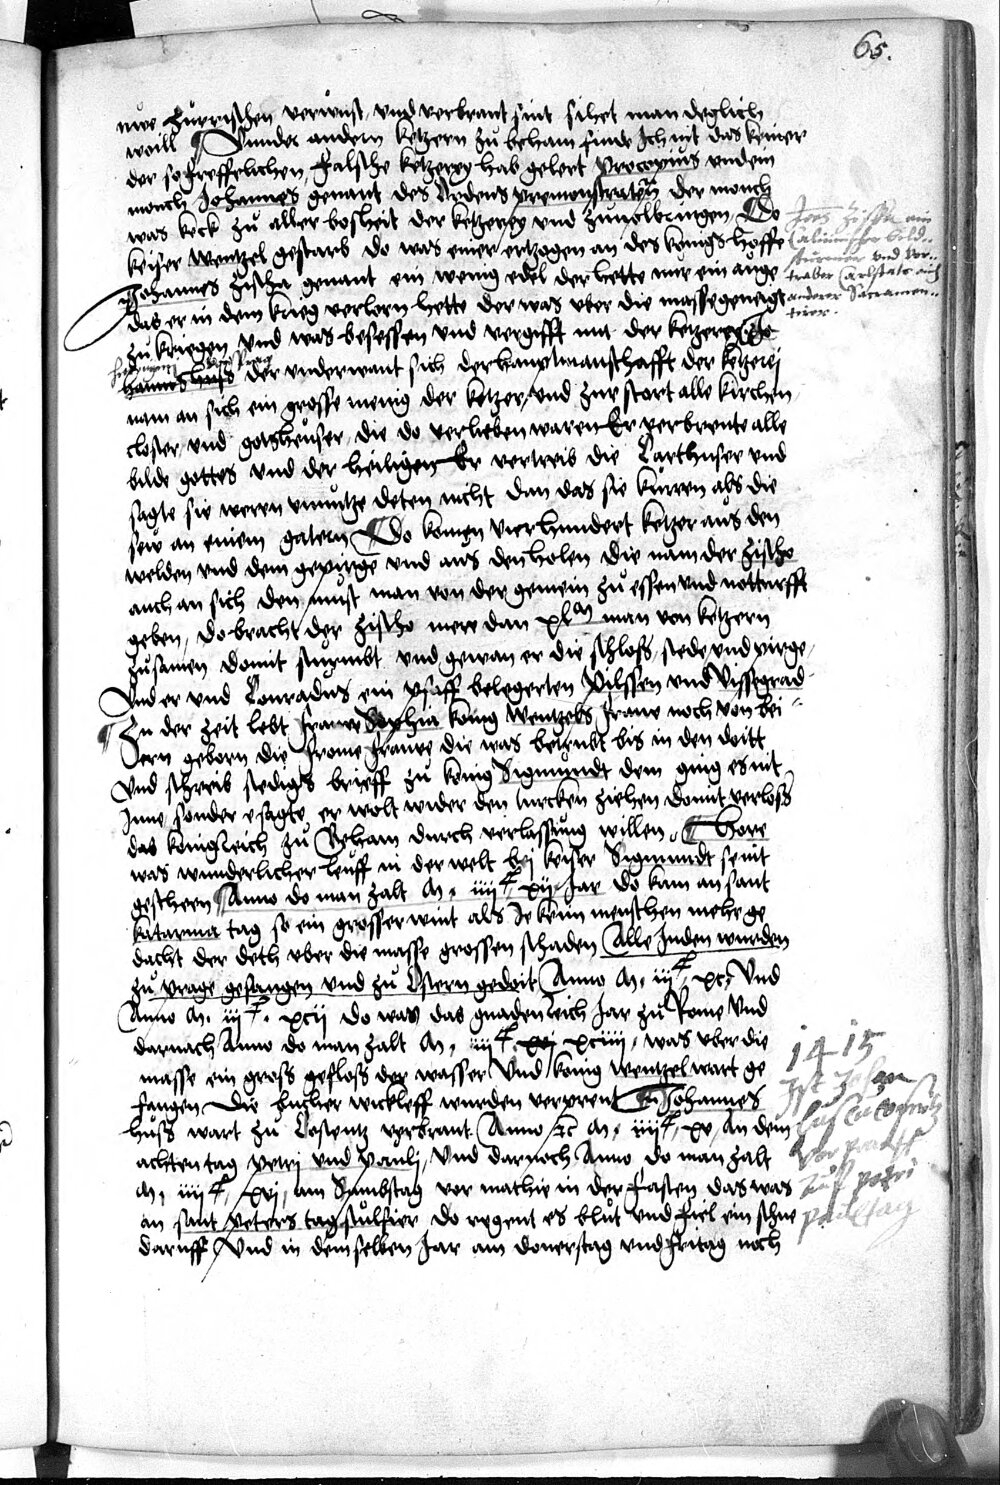 65.
nwe hurrischen verwust und verbrant sint sihet man deglich
woill Sunder andern ketzern zu beham finde ich nit das keiner
der so freffelichen falsche ketzerey hab gelert Procopius und ein
monch Johannes genant des Ordens premonstraten der monch
was keck zu aller bosheit der ketzerey und zuvolbringen Do
keiser wentzel gestarb do was einer ertzogen an des konigs hoffe
Johannes Zischa genant ein wenig edel der hette nur ein auge
das er in dem krieg verlorn hette der was uber die masse geneigt
zu kriegen und was besessen und vergifft mit der ketzerey Jo
hannes Huss der underwant sich der hauptmanschafft der ketzerei
nam an sich ein grosse menig der ketzer und zurstort alle kirchen
closter und gotzheuser die do verlieben waren Er verbrente alle
bilde gottes und der heiligen Er vertreib die Carthuser und
sagte sie weren unnutze deten nicht dan das sie kurren als die
sew an einem gatern Do komen vierhundert ketzer aus den
welden und dem gepirge und aus den holen die nam der Zischo
auch an sich den must man von der gemein zu essen und notturfft
geben, do bracht der Zischo mere dan xl m man von ketzern
zusamen domit sturmbt und gewan er die schloss stede und pirge
Und er und Conradus ein pfaff belegerten Pilssen und Vissegrad
Zu der zeit lebt frauwe Sophia konig wentzels frauw noch von bei
ern geborn die frome frauwe die was betrubt bis in den doitt
Und schreib stedigs brieff zu konig Sigmundt dem ging es nit
Inne sonder e sagte er wolt wider den turcken ziehen domit verloss
das konigreich zu Beham durch verlassung willen Hore
was wunderlicher leuff in der welt bej keiser Sigmundt seint
gescheen Anno do man zalt M. iiii C xij Jar do kam an sant
katarina tag so ein grosser wint als Je kein menschen mehr ge
dacht der deth uber die masse grossen schaden Alle Juden wurden
zu prage gefangen und zu Ostern gedoit Anno M. iii C xc, Und
Anno M. iii C. xcij do was das gnadenreich Jar zu Rome Und
darnach Anno do man zalt M. iiii C xciiii, was uber die
masse ein gross gefloss der wasser Und konig wentzel wart ge
fangen Die bucher wickleff wurden verprent Johannes
huss wart zu Costentz verbrant Anno M. iiii C, xv, An dem
achten tag petri und Pauli, Und darnoch Anno do man zalt
M, iiii C, xvj, am Sambstag vor mathie in der fasten das was
an sant Peters tag stulfier do regent es blut und fiel ein schne
daruff Und in demselben Jar am donerstag und fritag noch
Joes Zischka ein
Calvinischer bild..
sturmer und vor..
traber Carlstats auch
anderer Sacramen..
tirer.
1415
Ist Johan
hus zu Costnitz
verprandt
auf petri
paultag